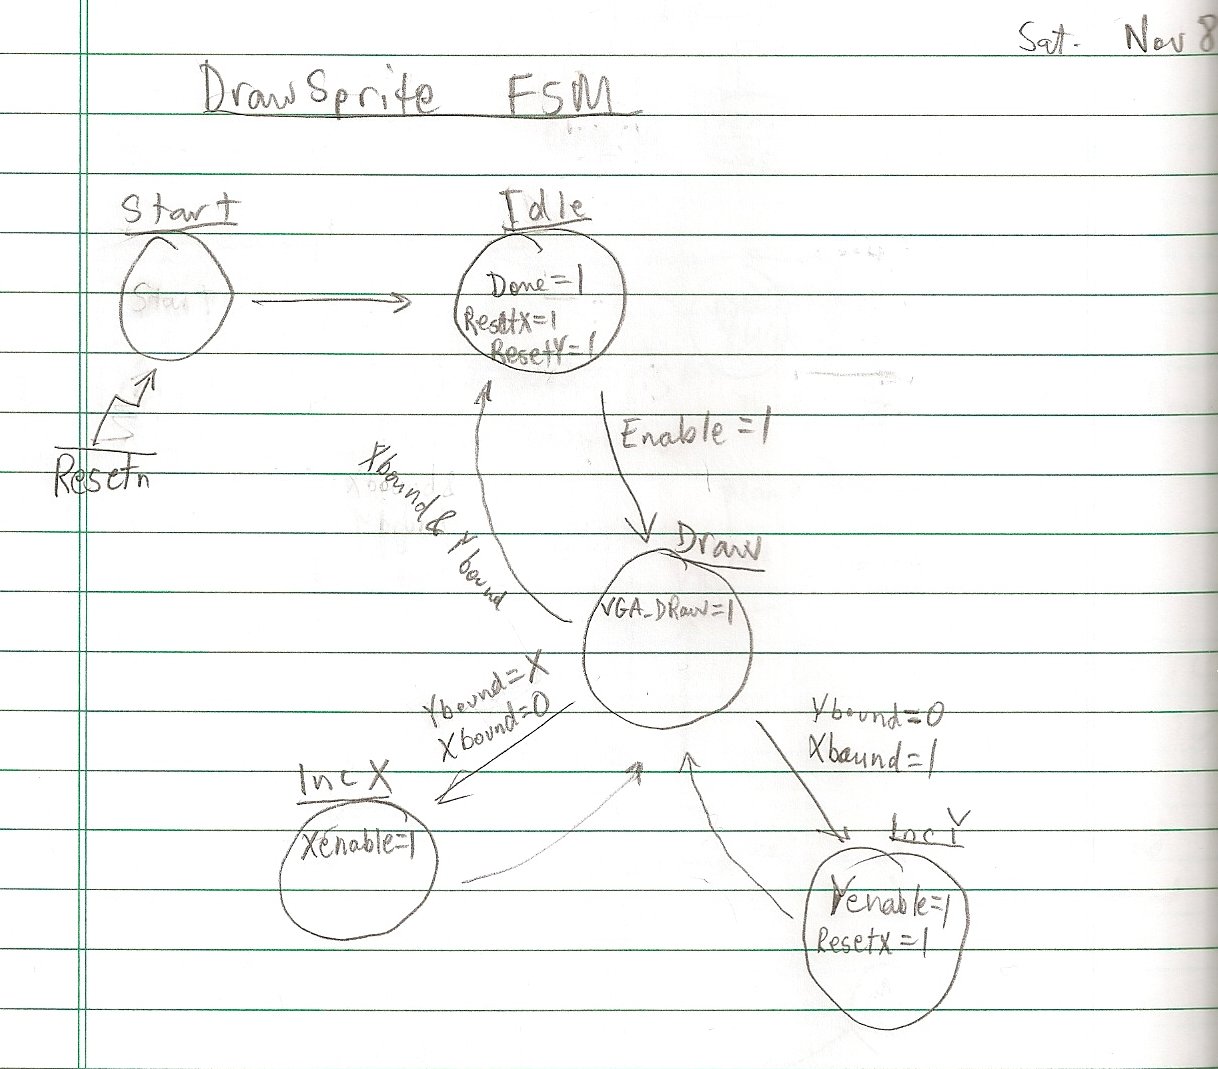 Sat. Nov 8
DrawSprite FSM
Start
Idle
Start
Done=1
ResetX=1
ResetY=1
Enable=1
Resetn
Xbound & Ybound
Draw
VGA_DRaw=1
Ybound=X
Xbound=0
Ybound=0
Xbound=1
IncX
Xenable=1
IncY
Yenable=1
Resetx=1